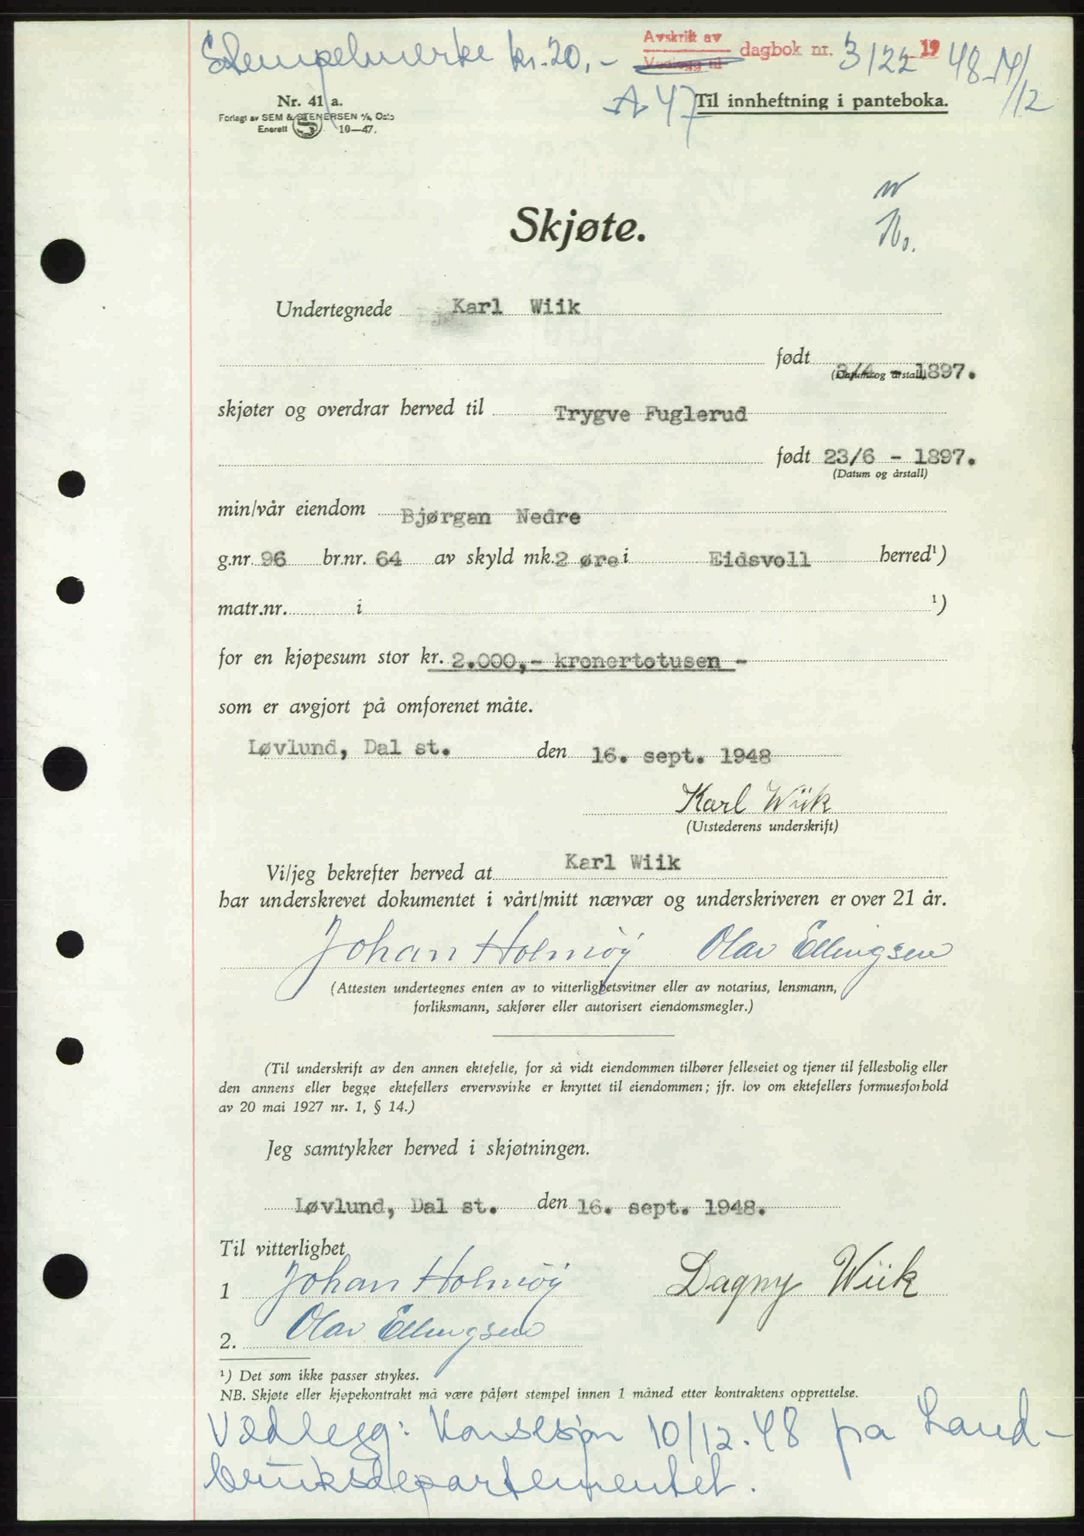 Stempelmerke kr. 20,-
Avskrift av
Vedlegg til
dagbok nr. 3122 1948 - 17/12
A 47
Nr. 41 a.
Forlagt av SEM & STENERSEN A/S, Oslo
Enerett S 10—47.
Til innheftning i panteboka.
Skjøte.
Undertegnede Karl Wiik
født 1897.
(Datum og årstall)
skjøter og overdrar herved til Trygve Fuglerud
født 23/6 - 1897.
(Datum og årstall)
min/vår eiendom Bjørgan Nedre
g.nr. 96 br.nr. 64 av skyld mk. 2 øre i Eidsvoll herred¹)
matr.nr. i ¹)
for en kjøpesum stor kr. 2.000,- kronertotusen -
som er avgjort på omforenet måte.
Løvlund, Dal st. den 16. sept. 1948
Karl Wiik
(Utstederens underskrift)
Vi/jeg bekrefter herved at Karl Wiik
har underskrevet dokumentet i vårt/mitt nærvær og underskriveren er over 21 år.
Johan Holmøy Olav Ellingsen
(Attesten undertegnes enten av to vitterlighetsvitner eller av notarius, lensmann,
forliksmann, sakfører eller autorisert eiendomsmegler.)
(Til underskrift av den annen ektefelle, for så vidt eiendommen tilhører felleseiet og tjener til fellesbolig eller
den annens eller begge ektefellers ervervsvirke er knyttet til eiendommen; jfr. lov om ektefellers formuesforhold
av 20 mai 1927 nr. 1, § 14.)
Jeg samtykker herved i skjøtningen.
Løvlund, Dal st. den 16. sept. 1948.
Til vitterlighet
1 Johan Holmøy Dagny Wiik
2. Olav Ellingsen
¹) Det som ikke passer strykes.
NB. Skjøte eller kjøpekontrakt må være påført stempel innen 1 måned etter kontraktens opprettelse.
Vedlegg: Konsesjon 10/12.48 på Land-
bruksdepartementet.